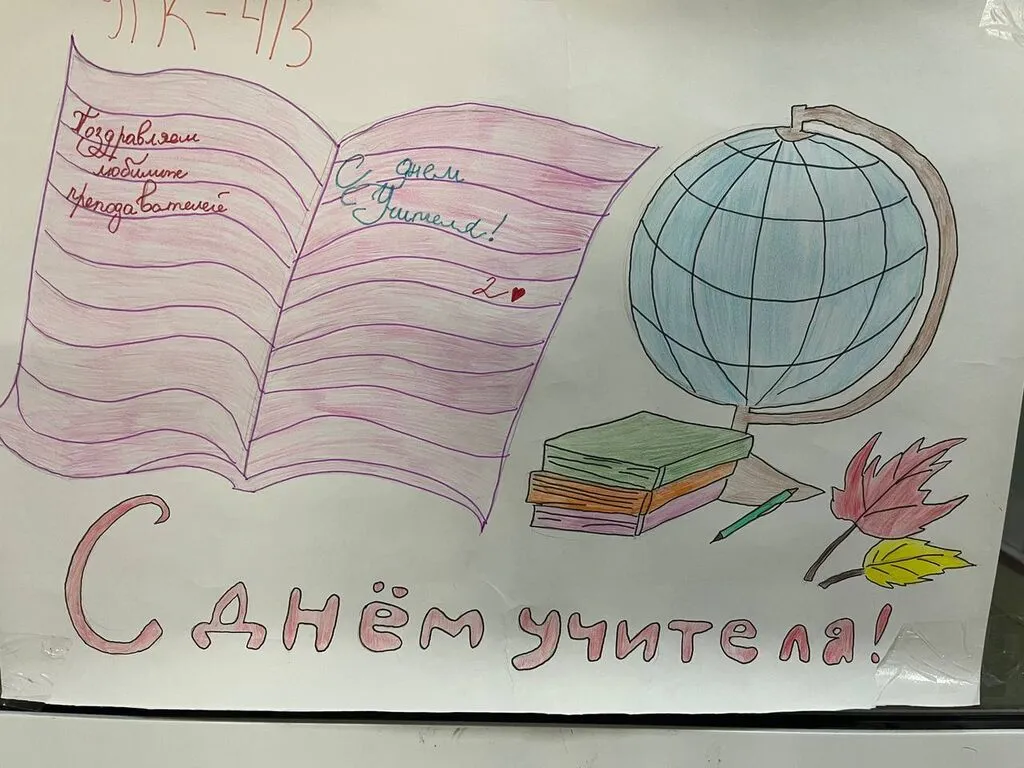 ПК-413
Поздравляем
любимых
преподавателей
С днем
Учителя!
2
С днём учителя!